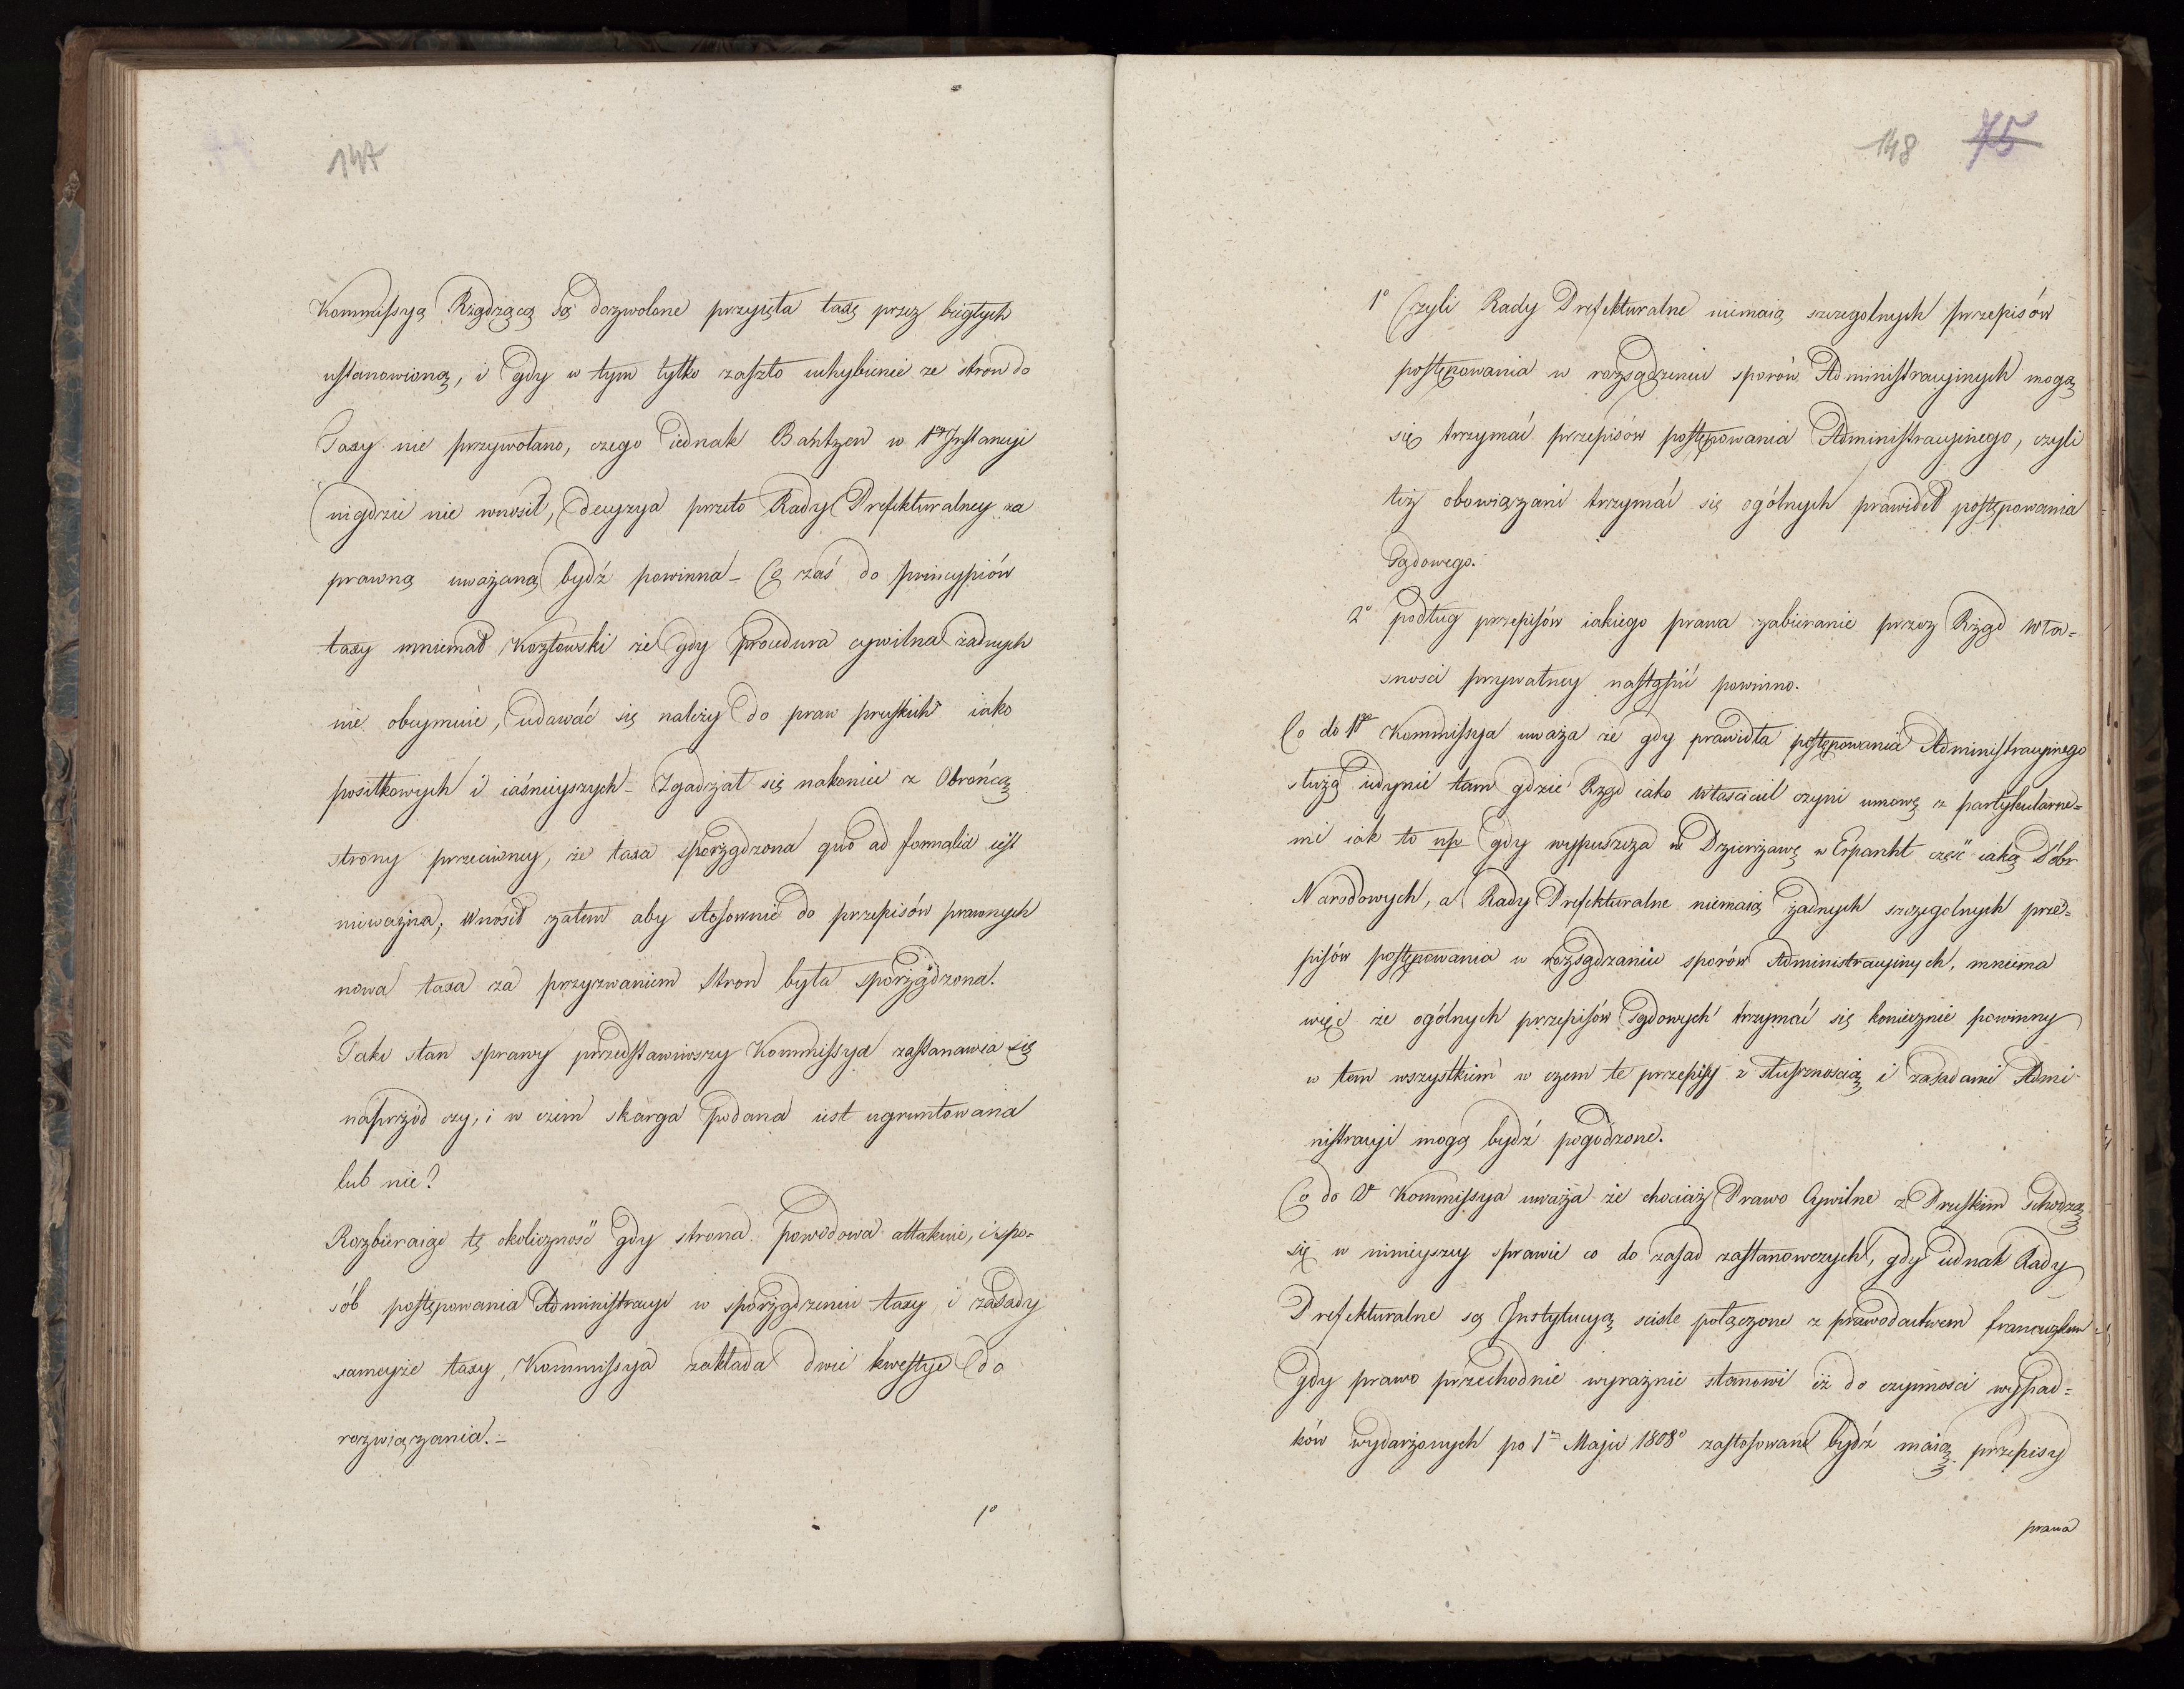 147
Kommissyą Rządzącą są dozwolone przyięła taxę przez biegłych
ustanowioną, i gdy w tym tylko zaszło uchybienie ze stron do
Taxy nie przywołano, czego iednak Bantzen w 1ey Instancyi
nigdzie nie wnosił, decyzya przeto Rady Prefekturalney za
prawną uważaną bydź powinna – Co zaś do princypiów
taxy mniemał Kozłowski że gdy Procedura cywilna żadnych
nie obeymuie, udawać się należy do praw pruskich iako
posiłkowych i iaśnieyszych – Zgadzał się nakoniec z Obrońcą
strony przeciwney, że taxa sporządzona quo ad formalia iest
nieważna; wnosił zatem aby stosownie do przepisów prawnych
nowa taxa za przyzwaniem stron była sporządzona.
Taki stan sprawy przedstawiwszy Kommissya zastanawia się
naprzód czy, i w czem skarga podana iest ugruntowana
lub nie?
Rozbieraiąc tę okoliczność gdy strona powodowa attakuie, i spo=
sób postępowania Administracyi w sporządzeniu taxy i zasady
sameyże taxy, Kommissya zakłada dwie kwestye do
rozwiązania. –
1o
148 75
1o Czyli Rady Prefekturalne niemaią szczegolnych przepisów
postępowania w rozsądzeniu sporów Administracyinych mogą
się trzymać przepisów postępowania Administracyinego, czyli
też obowiązani trzymać się ogólnych prawideł postępowania
Sądowego.
2o podług przepisów iakiego prawa zabieranie przez Rząd wła=
sności prywatney nastąpić powinno.
Co do 1go Kommissya uważa że gdy prawidła postępowania Administracyinego
służą iedynie tam gdzie Rząd iako właściciel czyni umowę z partykularne=
mi iak to np gdy wypuszcza w Dzierżawę w Erpanht część iaką Dóbr
Narodowych, a Rady Prefekturalne niemaią żadnych szczegolnych prze=
pisów postępowania w rozsądzaniu sporów Administracyinych, mniema
więc że ogólnych przepisów Sądowych trzymać się koniecznie powinny
w tem wszystkiem w czem te przepisy z słusznością i zasadami Admi-
nistracyi mogą bydź pogodzone.
Co do 2o Kommissya uważa że chociaż Prawo Cywilne z Pruskim schodzą
się w ninieyszey sprawie co do zasad zastanowczych, gdy iednak Rady
Prefekturalne są Instytucyą sciśle połączone z prawodastwem francuzkiem
gdy prawo przechodnie wyraźnie stanowi iż do czynności wypad=
ków wydarzonych po 1m Maju 1808o zastosowane bydź maią przepisy
prawa